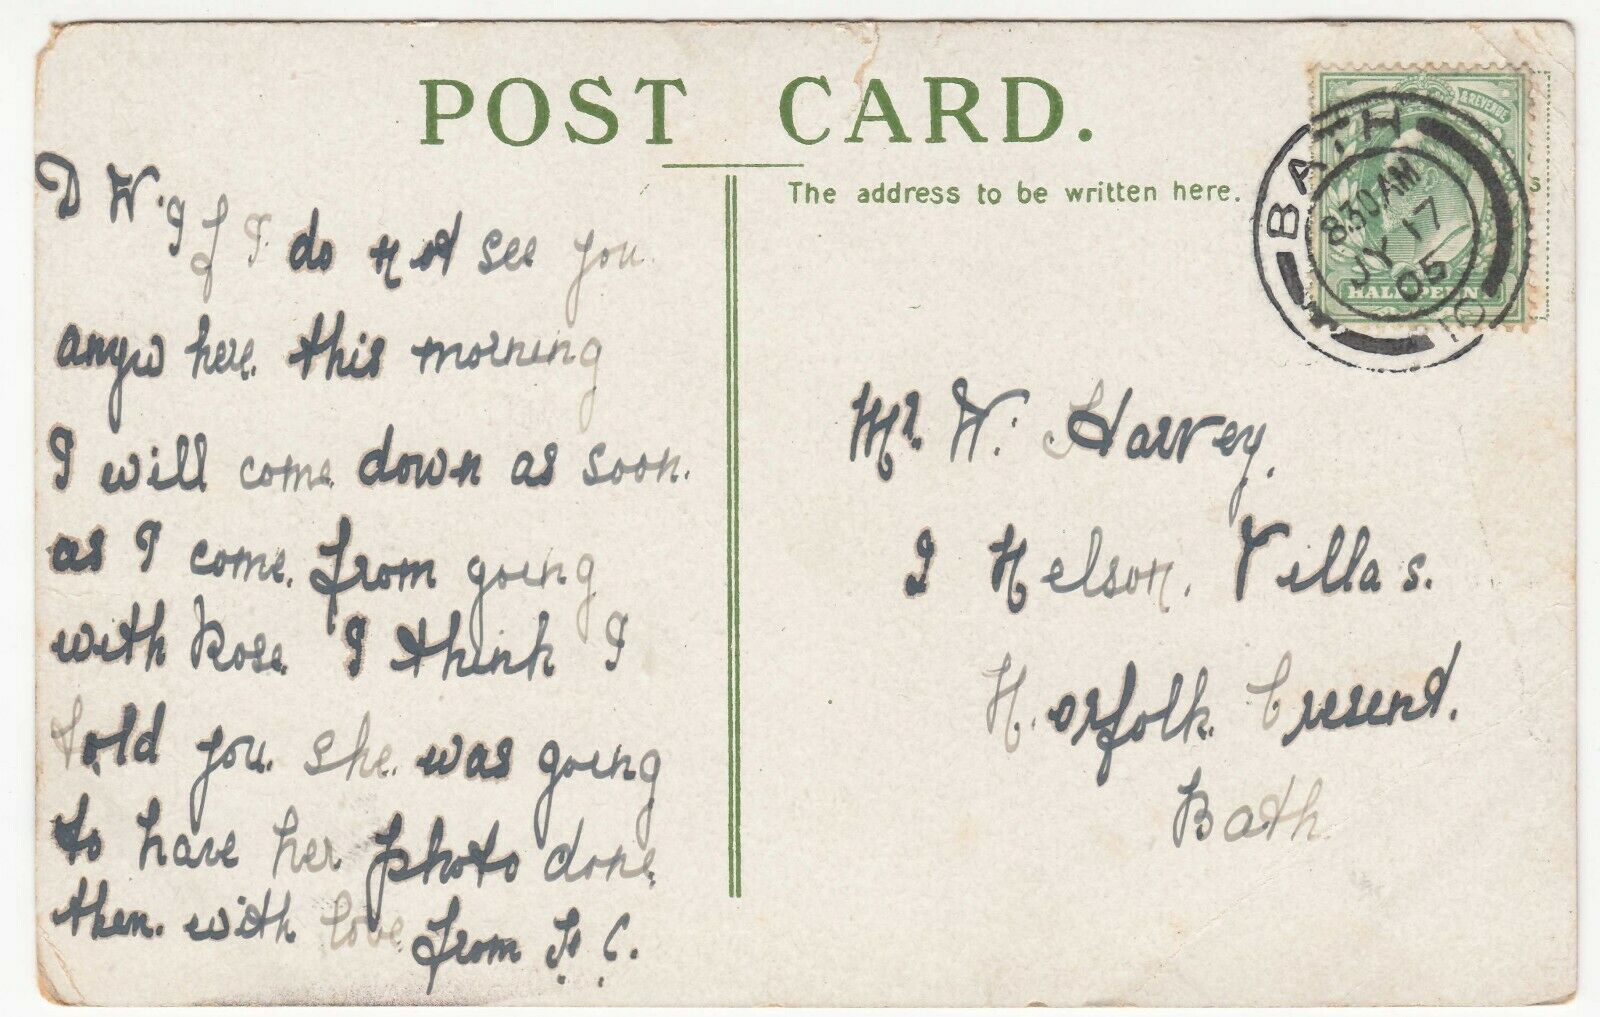 POST CARD.
The address to be written here.
BATH
8.30 AM
JY 17
05
& REVENUE
HALFPENNY
D W. If I do not see you
anyw here. this morning
I will come down as soon.
as I come. from going
with Rose I think I
told you. she. was going
to have her photo done
then. with love from H. C.
Mr. W. Harvey,
I Nelson. Villas.
Norfolk. Cresend.
Bath